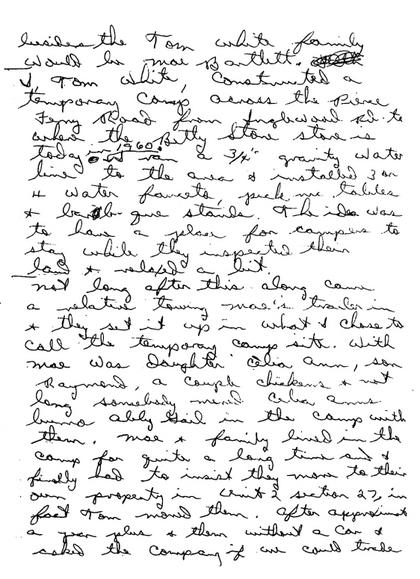 besides the Tom white family
would be mae Bartlett.
I, Tom White, constructed a
temporary camp across the Pierce
Ferry Road from Inglewood Rd to
where the Betty Stone store is
today - 1960. ran a 3/4" gravity water
line to the area & installed 3 or
4 water faucets, pick nic tables
& barb que stands. The idea was
to have a place for campers to
stay while they inspected their
land & relaxed a bit.
not long after this along came
a relative towing mae's trailer in
& they set it up in what I chose to
call the temporary camp site. With
mae was Daughter Celia Ann, son
Raymond, a couple chickens & not
long somebody Celia anns
in the camp with
them. Mae & family lived in the
camp for quite a long time and I
finally had to insist they move to their
own property in Unit 2 section 27, in
fact Tom moved them. After approximate
a year plus & them without a car &
asked the company if we could trade